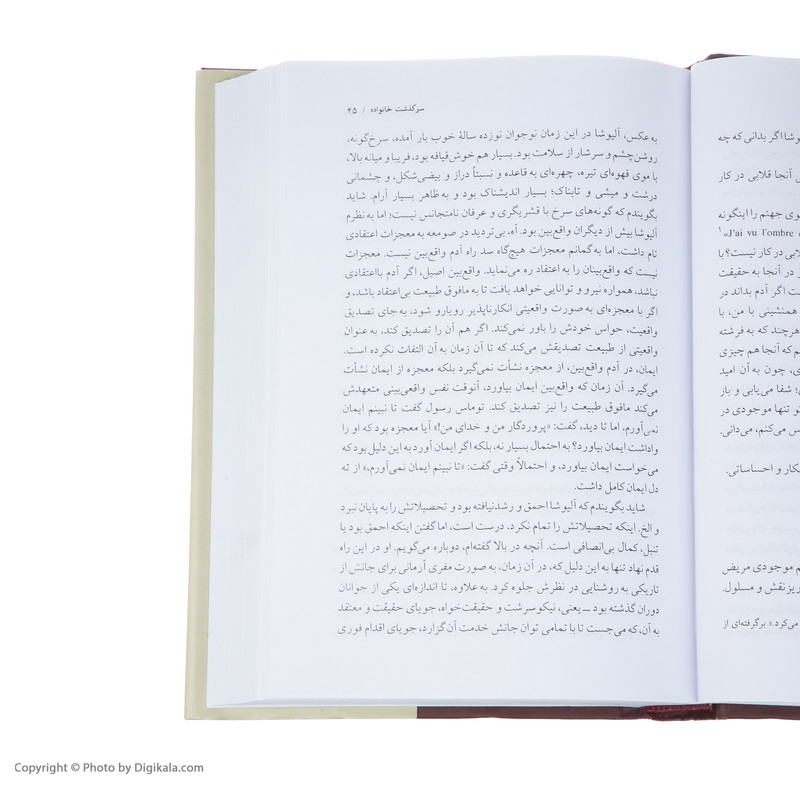 یوشا اگر بدانی که چه
آنجا قلابی در کار
وی جهنم را اینگونه
«J'ai vu l'ombre ۱
لابی در کار نیست؟ با
در آنجا به حقیقت
ت اگر آدم بداند در
همنشینی با من، با
هرچند که به فرشته
م که آنجا هم چیزی
ی، چون به آن امید
؛ شفا می‌یابی و باز
تو تنها موجودی در
س می‌کنم، می‌دانی.
کار و احساساتی.
م موجودی مریض
ریزنقش و مسلول.
می‌کرد.» برگرفته‌ای از
سرگذشت خانواده / ۴۵
به عکس، آلیوشا در این زمان نوجوان نوزده سالهٔ خوب بار آمده، سرخ‌گونه،
روشن‌چشم و سرشار از سلامت بود. بسیار هم خوش‌قیافه بود، فریبا و میانه بالا،
با موی قهوه‌ای تیره، چهره‌ای به قاعده و نسبتاً دراز و بیضی‌شکل، و چشمانی
درشت و میشی و تابناک؛ بسیار اندیشناک بود و به ظاهر بسیار آرام. شاید
بگویندم که گونه‌های سرخ با قشریگری و عرفان نامتجانس نیست؛ اما به نظرم
آلیوشا بیش از دیگران واقع‌بین بود. آه، بی‌تردید در صومعه به معجزات اعتقادی
تام داشت، اما به گمانم معجزات هیچ‌گاه سد راه آدم واقع‌بین نیست. معجزات
نیست که واقع‌بینان را به اعتقاد ره می‌نماید. واقع‌بین اصیل، اگر آدم بااعتقادی
نباشد، همواره نیرو و توانایی خواهد یافت تا به مافوق طبیعت بی‌اعتقاد باشد، و
اگر با معجزه‌ای به صورت واقعیتی انکارناپذیر رویارو شود، به جای تصدیق
واقعیت، حواس خودش را باور نمی‌کند. اگر هم آن را تصدیق کند، به عنوان
واقعیتی از طبیعت تصدیقش می‌کند که تا آن زمان به آن التفات نکرده است.
ایمان، در آدم واقع‌بین، از معجزه نشأت نمی‌گیرد بلکه معجزه از ایمان نشأت
می‌گیرد. آن زمان که واقع‌بین ایمان بیاورد، آنوقت نفس واقع‌بینی متعهدش
می‌کند مافوق طبیعت را نیز تصدیق کند. توماس رسول گفت تا نبینم ایمان
نمی‌آورم، اما تا دید، گفت: «پروردگار من و خدای من!» آیا معجزه بود که او را
واداشت ایمان بیاورد؟ به احتمال بسیار نه، بلکه اگر ایمان آورد به این دلیل بود که
می‌خواست ایمان بیاورد، و احتمالاً وقتی گفت: «تا نبینم ایمان نمی‌آورم،» از ته
دل ایمان کامل داشت.
شاید بگویندم که آلیوشا احمق و رشدنیافته بود و تحصیلاتش را به پایان نبرد
و الخ. اینکه تحصیلاتش را تمام نکرد، درست است، اما گفتن اینکه احمق بود یا
تنبل، کمال بی‌انصافی است. آنچه در بالا گفته‌ام، دوباره می‌گویم. او در این راه
قدم نهاد تنها به این دلیل که، در آن زمان، به صورت مفری آرمانی برای جانش از
تاریکی به روشنایی در نظرش جلوه کرد. به علاوه، تا اندازه‌ای یکی از جوانان
دوران گذشته بود ــ یعنی، نیکوسرشت و حقیقت‌خواه، جویای حقیقت و معتقد
به آن، که می‌جست تا با تمامی توان جانش خدمت آن گزارد، جویای اقدام فوری
Copyright © Photo by Digikala.com